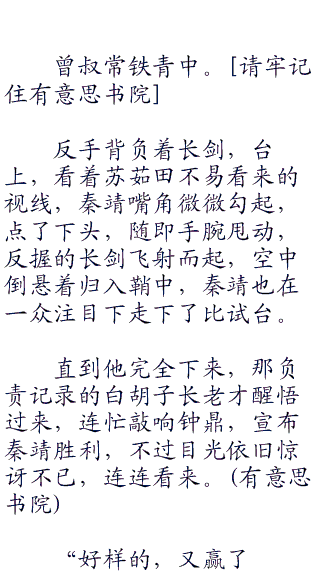 曾叔常铁青中。[请牢记
住有意思书院]
反手背负着长剑，台
上，看着苏茹田不易看来的
视线，秦靖嘴角微微勾起，
点了下头，随即手腕甩动，
反握的长剑飞射而起，空中
倒悬着归入鞘中，秦靖也在
一众注目下走下了比试台。
直到他完全下来，那负
责记录的白胡子长老才醒悟
过来，连忙敲响钟鼎，宣布
秦靖胜利，不过目光依旧惊
讶不已，连连看来。(有意思
书院)
“好样的，又赢了